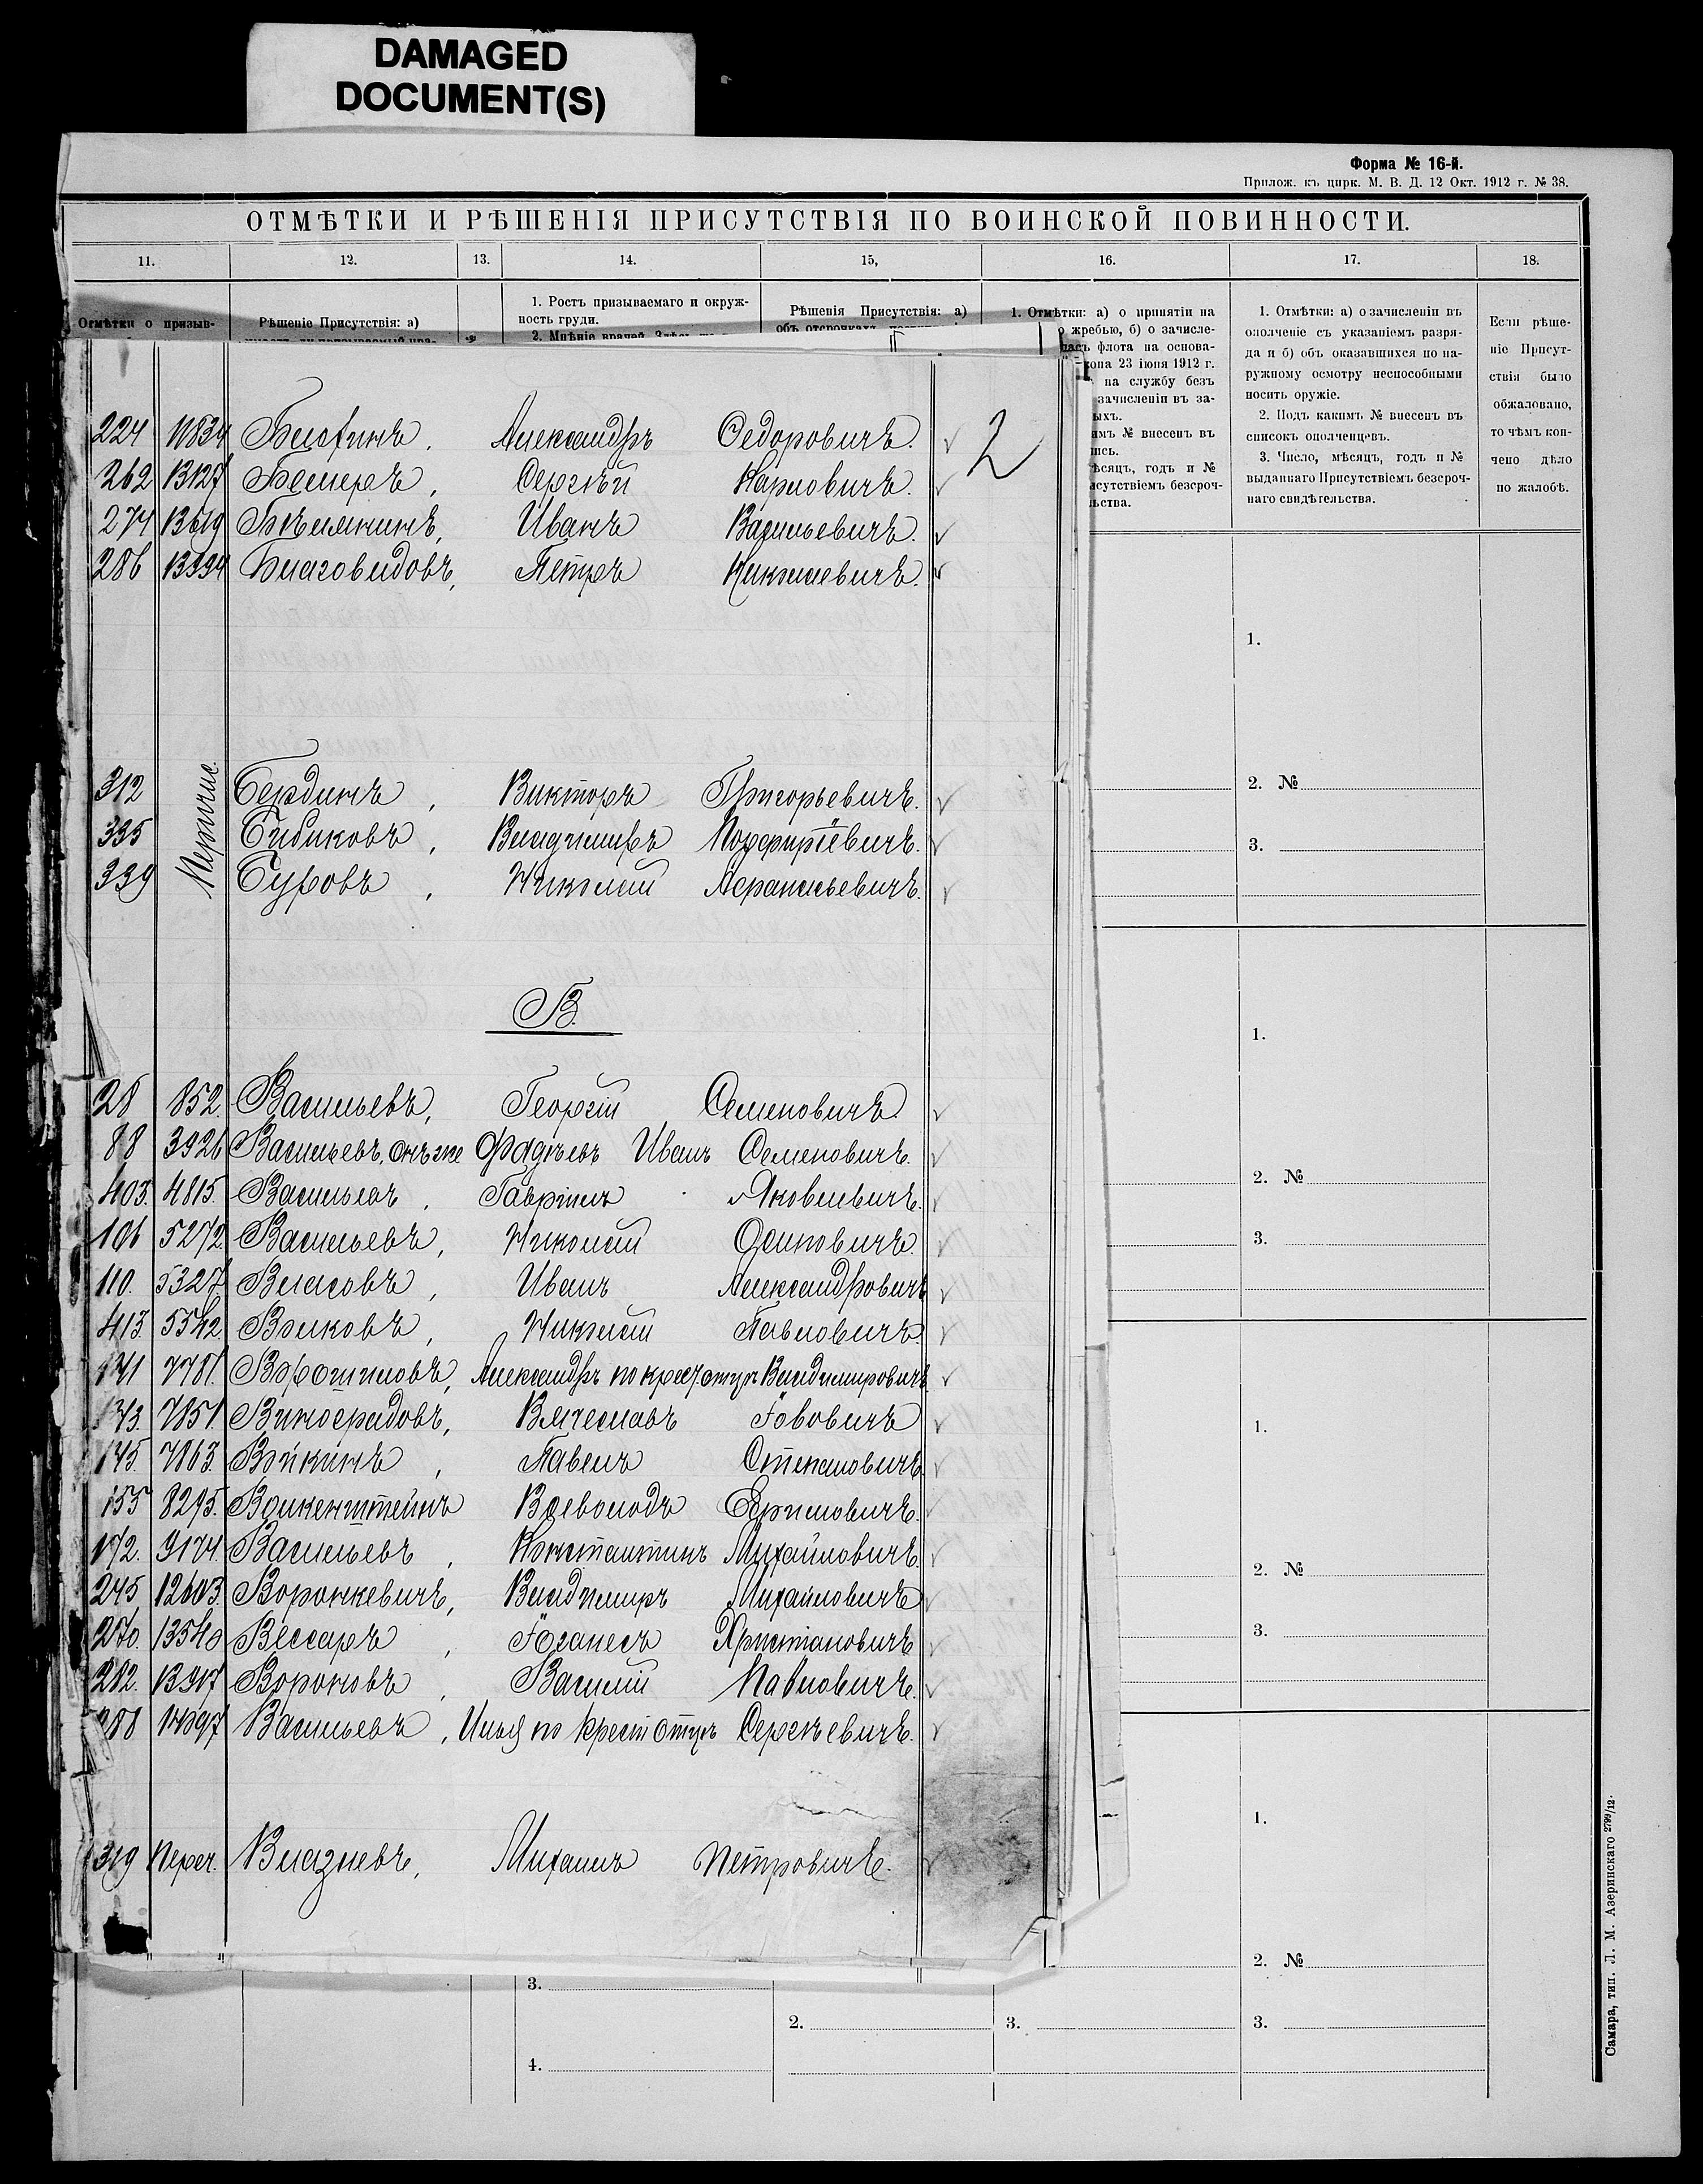 DAMAGED
DOCUMENT(S)
Форма № 16-й.
Прилож. къ цирк. М. В. Д. 12 Окт. 1912 г. № 38.
ОТМѢТКИ И РѢШЕНІЯ ПРИСУТСТВІЯ ПО ВОИНСКОЙ ПОВИННОСТИ.
11. 12. 13. 14. 15, 16. 17. 18.
Отмѣтки о призыв-
Рѣшеніе Присутствія: а)
1. Ростъ призываемаго и окруж-
ность груди.
2. Мнѣніе врачей.
Рѣшенія Присутствія: а)
объ отсрочкахъ
1. Отмѣтки: а) о принятіи на
жребью, б) о зачисле-
флота на основа-
23 іюня 1912 г.
на службу безъ
зачисленіи въ за-
№ внесенъ въ
годъ и №
безсроч-
1. Отмѣтки: а) о зачисленіи въ
ополченіе съ указаніемъ разря-
да и б) объ оказавшихся по на-
ружному осмотру неспособными
носить оружіе.
2. Подъ какимъ № внесенъ въ
списокъ ополченцевъ.
3. Число, мѣсяцъ, годъ и №
выданнаго Присутствіемъ безсроч-
наго свидѣтельства.
Если рѣше-
ніе Присут-
ствія было
обжаловано,
то чѣмъ кон-
чено дѣло
по жалобѣ.
2
224 11834 Александръ Федоровичъ.
262 13127 Бемеръ, Сергѣй Карловичъ.
274 13619 Бѣлянинъ, Иванъ Васильевичъ.
286 13994 Благовидовъ, Петръ Николаевичъ.
312 Бердинъ, Викторъ Григорьевичъ.
335 Бибиковъ, Владимиръ Порфиріевичъ.
339 Буровъ, Николай Афанасьевичъ.
В.
28 852. Васильевъ, Георгій Семеновичъ
88 3926 Васильевъ, онъ же Фадѣевъ Иванъ Семеновичъ.
103. 4815. Васильевъ, Гавріилъ Яковлевичъ.
106 5272. Васильевъ, Николай Осиповичъ.
110. 5327. Власовъ, Иванъ Александровичъ
113. 5542. Волковъ, Николай Павловичъ.
141 7781. Александръ по крест. отцу Владимировичъ
143. 7851. Виноградовъ, Вячеславъ Іововичъ
145. 7863. Войкинъ, Павелъ Степановичъ.
155 8295. Волкенштейнъ Всеволодъ Ермиловичъ.
172. 9174. Васильевъ, Константинъ Михайловичъ.
245 12603. Воронкевичъ, Владимиръ Михайловичъ
270. 13540 Вессаръ, Іоганесъ Христіановичъ
282. 13917 Вороновъ, Василій Павловичъ.
288 14097 Васильевъ, Илья по крест отцу Сергѣевичъ.
319 Переч. Влазневъ, Михаилъ Петровичъ.
1.
2. №
3.
1.
2. №
3.
1.
2. №
3.
1.
2. №
3.
3.
2.
3.
4.
Самара, тип. Л. М. Азеринскаго 2799/12.